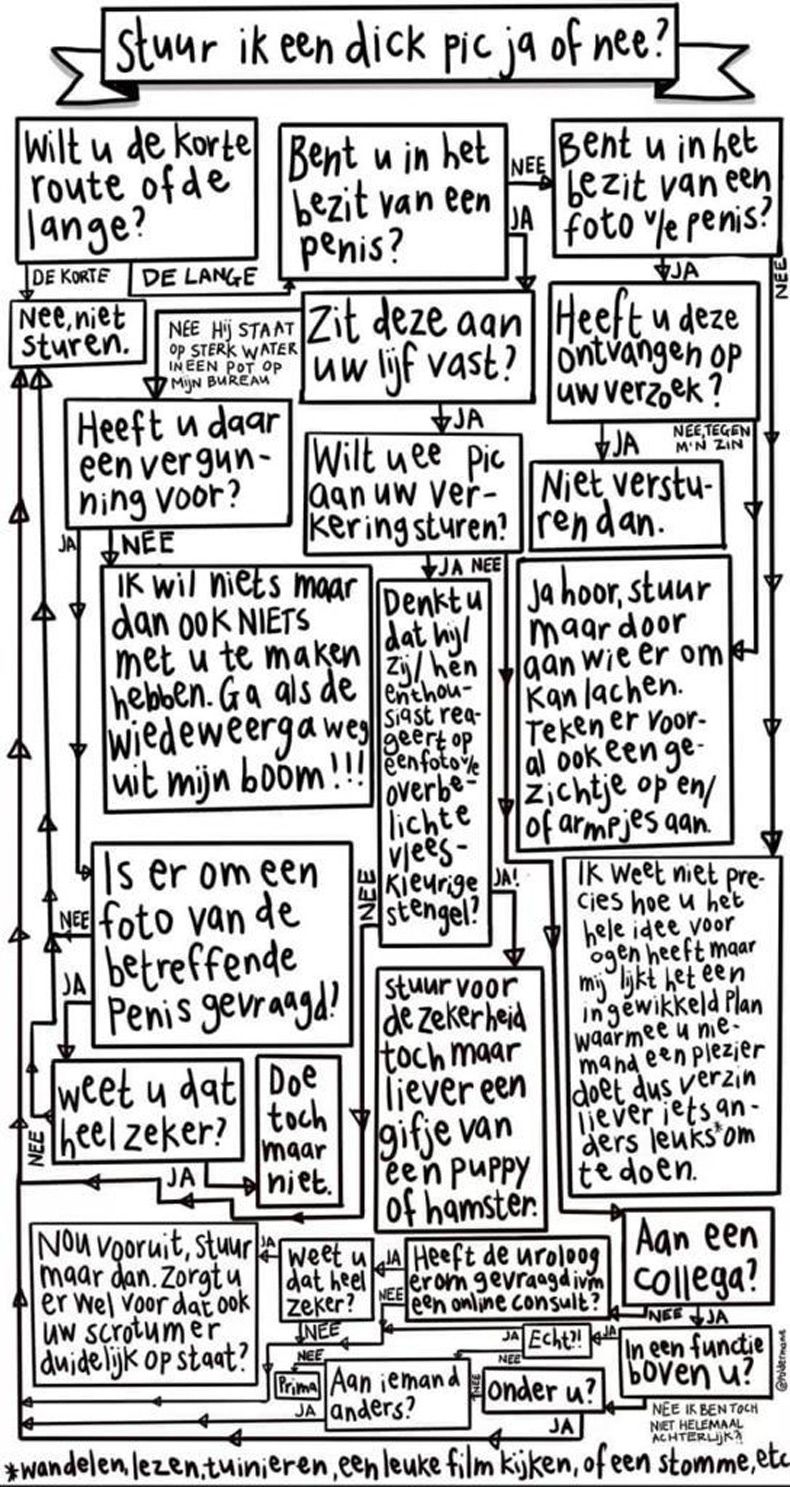 Stuur ik een dick pic ja of nee?
Wilt u de korte
route of de
lange?
DE KORTE
DE LANGE
Nee, niet
sturen.
Bent u in het
bezit van een
penis?
NEE
JA
Bent u in het
bezit van een
foto v/e penis?
JA
NEE
Zit deze aan
uw lijf vast?
NEE HIJ STAAT
OP STERK WATER
IN EEN POT OP
MIJN BUREAU
JA
Heeft u deze
ontvangen op
uw verzoek?
JA
NEE, TEGEN
M'N ZIN
Niet verstu-
ren dan.
Heeft u daar
een vergun-
ning voor?
JA
NEE
Wilt u ee pic
aan uw ver-
kering sturen?
JA NEE
Ik wil niets maar
dan ook NIETS
met u te maken
hebben. Ga als de
wiedeweerga weg
uit mijn boom!!!
Denkt u
dat hij/
zij/hen
enthou-
siast rea-
geert op
een foto v/e
overbe-
lichte
vlees-
kleurige
stengel?
NEE
JA!
Ja hoor, stuur
maar door
aan wie er om
kan lachen.
Teken er voor-
al ook een ge-
zichtje op en/
of armpjes aan.
Is er om een
foto van de
betreffende
penis gevraagd?
NEE
JA
Ik weet niet pre-
cies hoe u het
hele idee voor
ogen heeft maar
mij lijkt het een
ingewikkeld plan
waarmee u nie-
mand een plezier
doet dus verzin
liever iets an-
ders leuks* om
te doen.
Stuur voor
de zekerheid
toch maar
liever een
gifje van
een puppy
of hamster.
weet u dat
heel zeker?
NEE
JA
Doe
toch
maar
niet.
Aan een
collega?
NEE
JA
Heeft de uroloog
erom gevraagd ivm
een online consult?
JA
NEE
weet u
dat heel
zeker?
JA
NEE
Nou vooruit, stuur
maar dan. Zorgt u
er wel voor dat ook
uw scrotum er
duidelijk op staat?
In een functie
boven u?
JA
NEE IK BEN TOCH
NIET HELEMAAL
ACHTERLIJK?!
Echt?!
JA
NEE
onder u?
NEE
JA
Aan iemand
anders?
NEE
JA
Prima
*wandelen, lezen, tuinieren, een leuke film kijken, of een stomme, etc